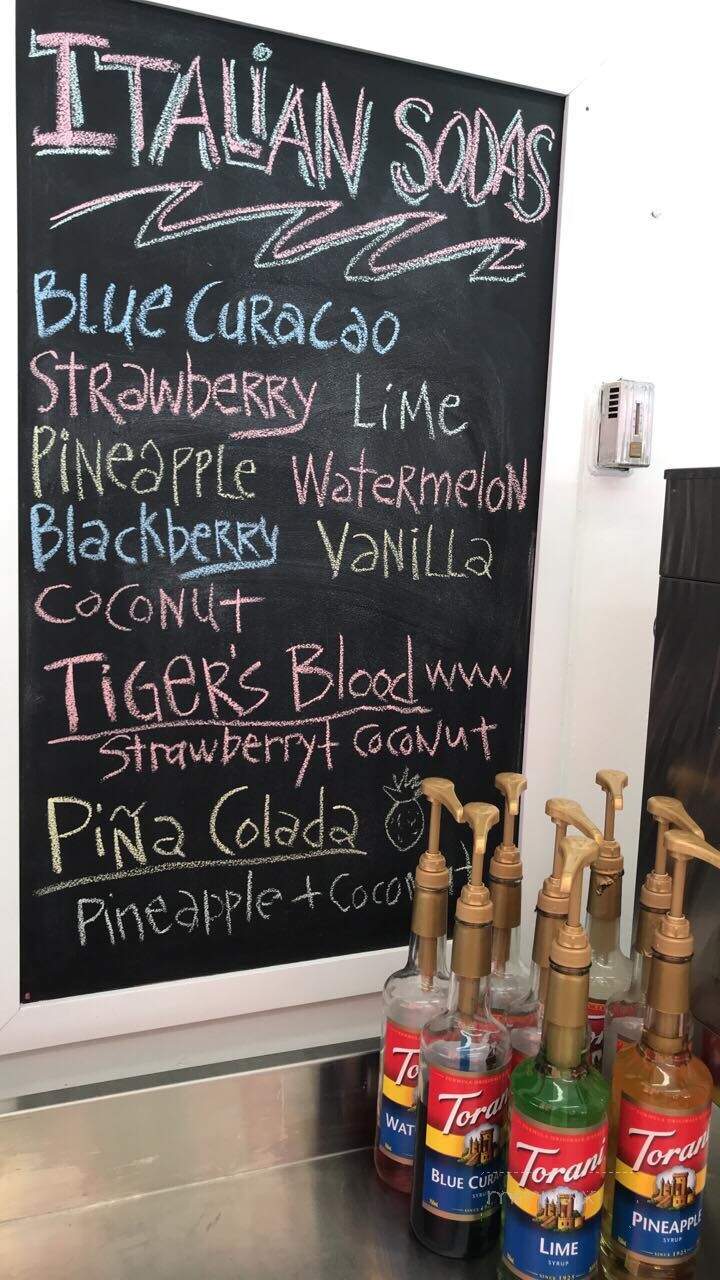 ITALIAN SODAS
Blue Curacao
Strawberry Lime
Pineapple Watermelon
Blackberry Vanilla
Coconut
Tiger's Blood
Strawberry + Coconut
Piña Colada
Pineapple + Coconut
Torani
WAT
Torani
BLUE CURA
SYRUP
Torani
LIME
SYRUP
SINCE 1925
Torani
PINEAPPLE
SYRUP
SINCE 1925